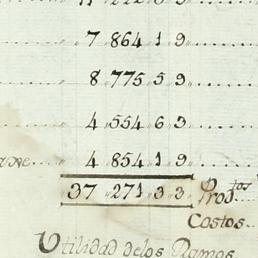 7 864 1 9
8 775 5 9
4 554 6 3
4 854 1 9
37 271 3 3 Prod.tos
Costos
Utilidad de los Ramos